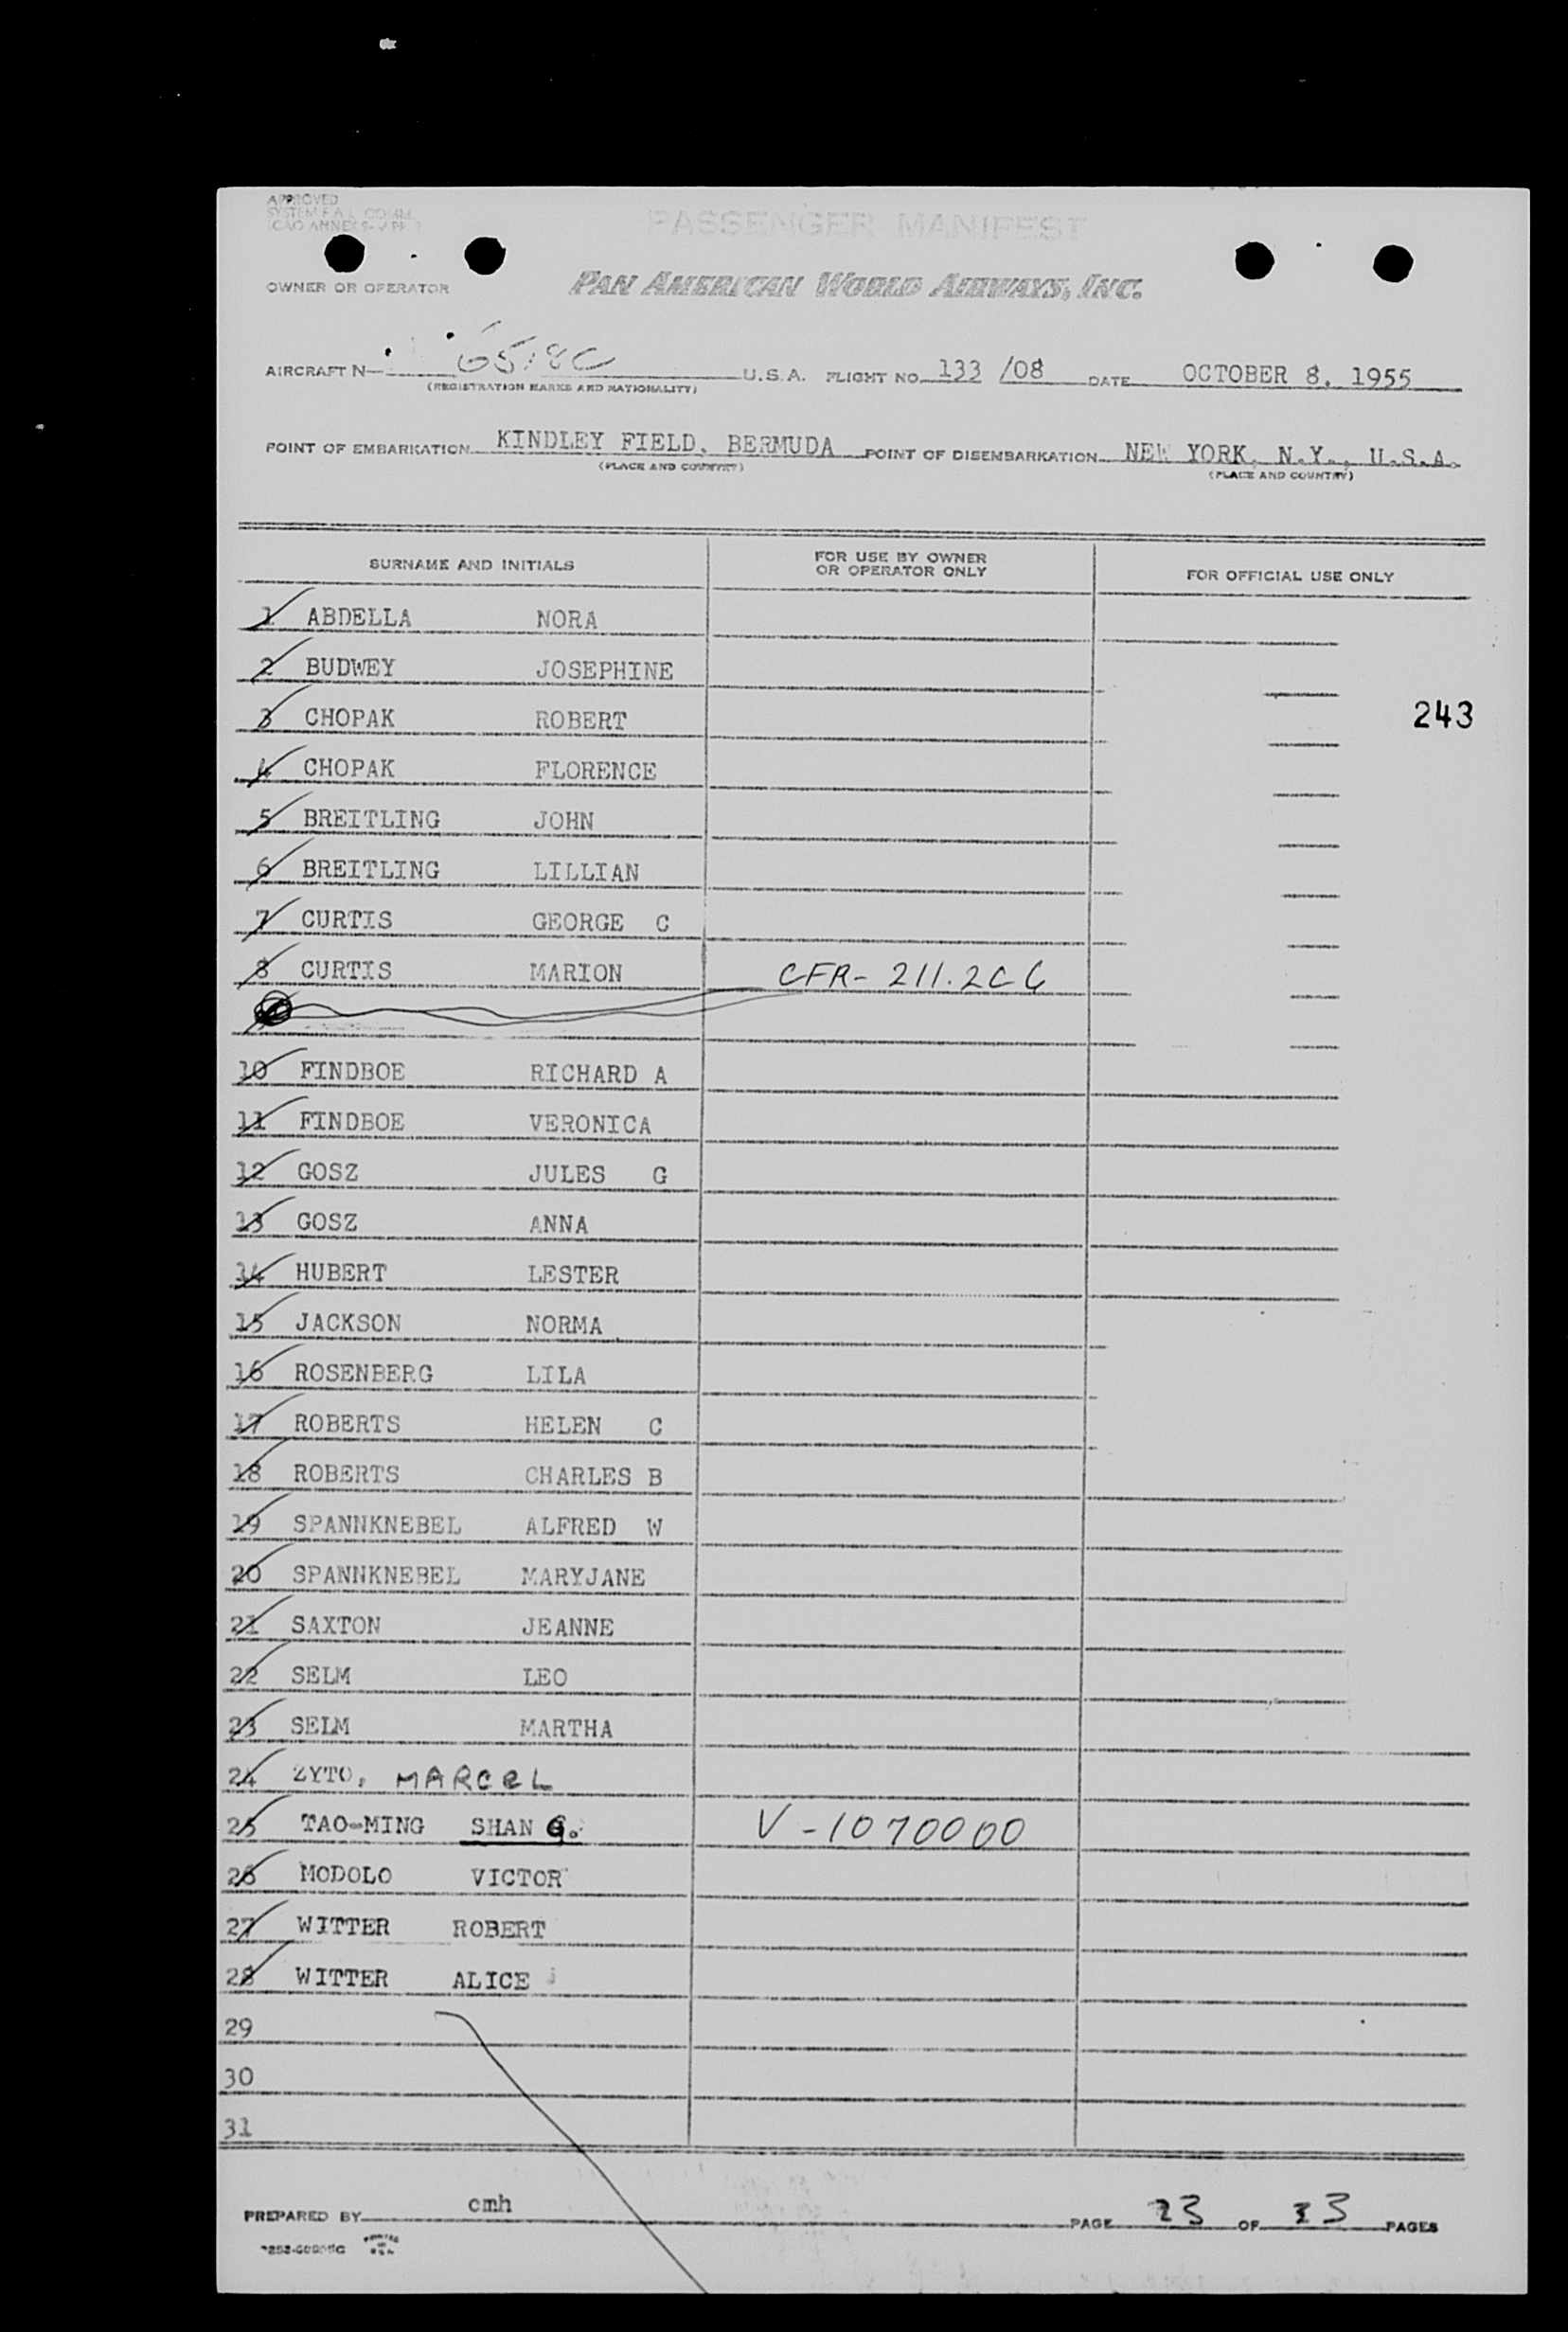 APPROVED
SYSTEM F.A.L. COMM.
ICAO ANNEX 9-APP.
PASSENGER MANIFEST
OWNER OR OPERATOR PAN AMERICAN WORLD AIRWAYS, INC.
AIRCRAFT N U.S.A. FLIGHT NO. 133 /08 DATE OCTOBER 8, 1955
(REGISTRATION MARKS AND NATIONALITY)
POINT OF EMBARKATION KINDLEY FIELD, BERMUDA POINT OF DISEMBARKATION NEW YORK, N.Y., U.S.A.
(PLACE AND COUNTRY) (PLACE AND COUNTRY)
SURNAME AND INITIALS FOR USE BY OWNER OR OPERATOR ONLY FOR OFFICIAL USE ONLY
1 ABDELLA NORA
2 BUDWEY JOSEPHINE
3 CHOPAK ROBERT 243
4 CHOPAK FLORENCE
5 BREITLING JOHN
6 BREITLING LILLIAN
7 CURTIS GEORGE C
8 CURTIS MARION CFR- 211.2C
10 FINDBOE RICHARD A
11 FINDBOE VERONICA
12 GOSZ JULES G
13 GOSZ ANNA
14 HUBERT LESTER
15 JACKSON NORMA
16 ROSENBERG LILA
17 ROBERTS HELEN C
18 ROBERTS CHARLES B
19 SPANNKNEBEL ALFRED W
20 SPANNKNEBEL MARYJANE
21 SAXTON JEANNE
22 SELM LEO
23 SELM MARTHA
24 ZYTO, MARCEL
25 TAO-MING SHAN G. V-1070000
26 MODOLO VICTOR
27 WITTER ROBERT
28 WITTER ALICE
29
30
31
PREPARED BY cmh PAGE 23 OF 33 PAGES
PRINTED IN U.S.A.